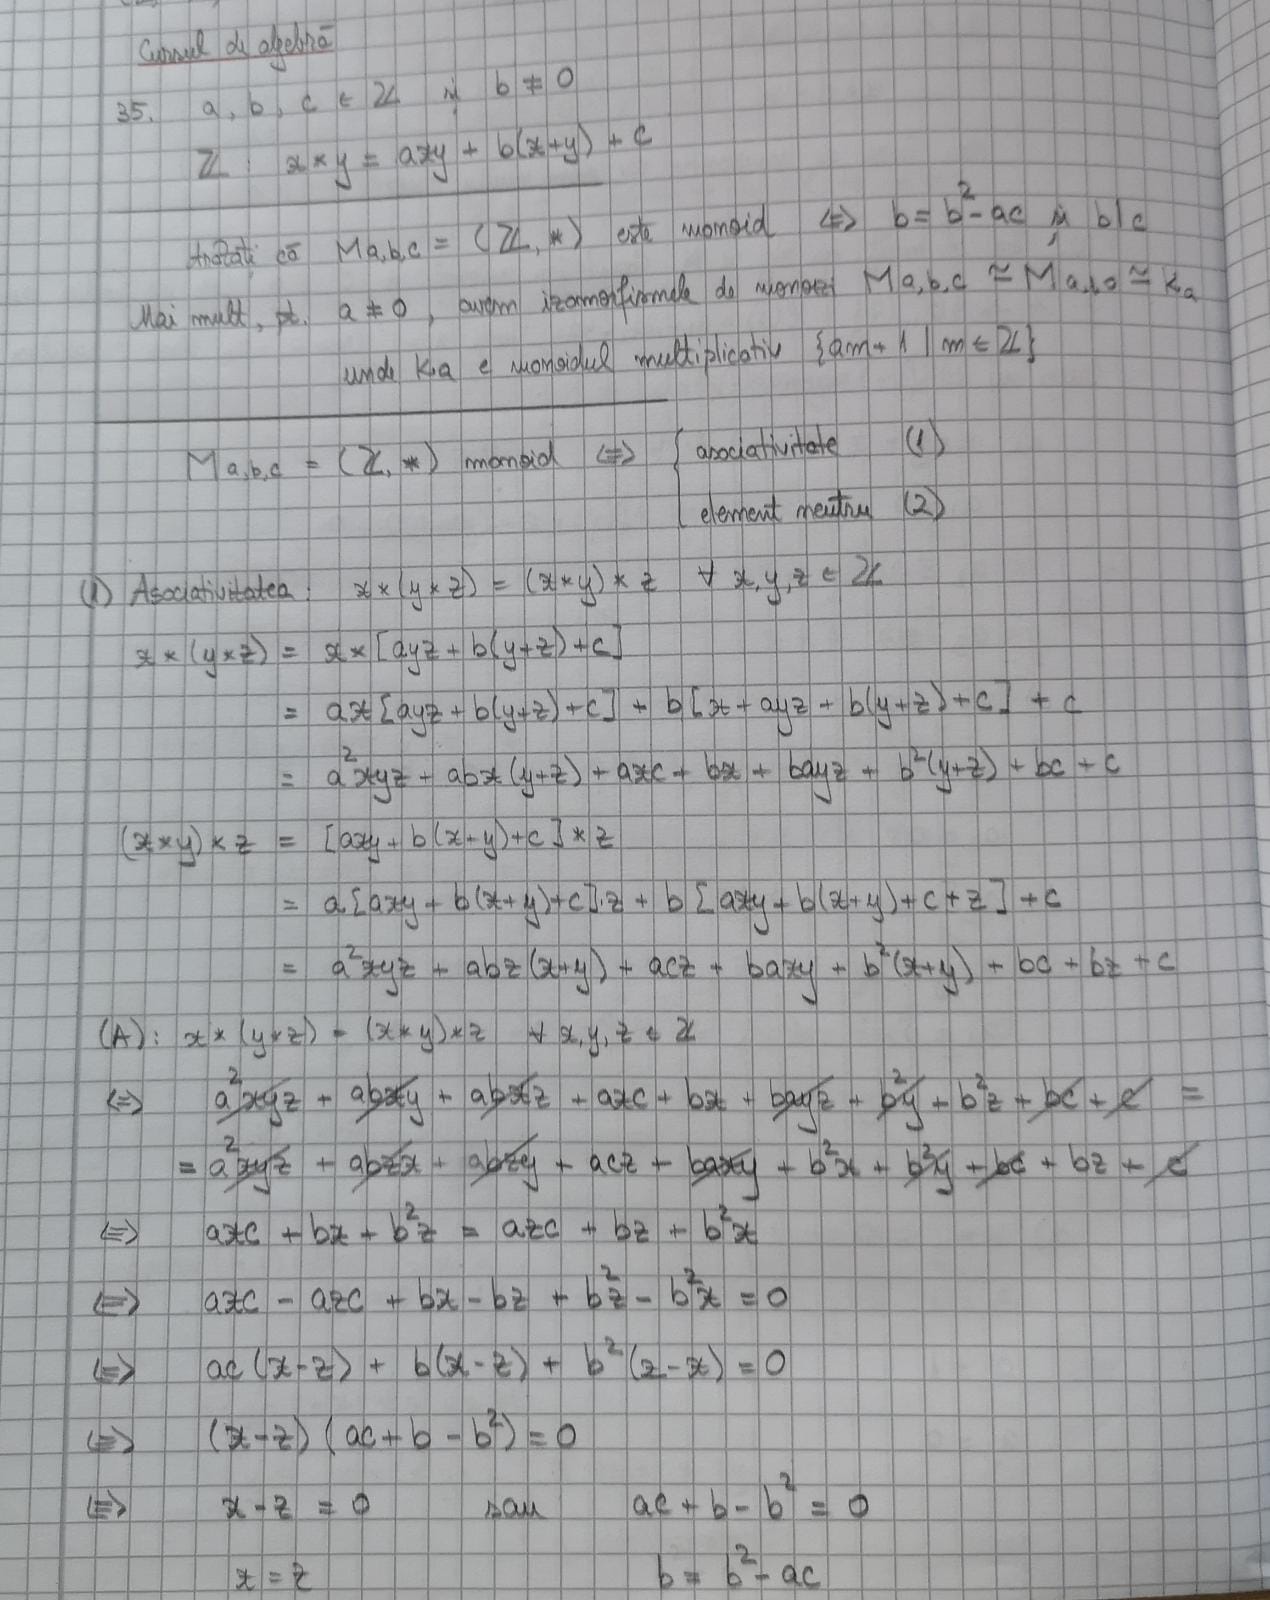 Cursul de algebră
35. a, b, c ∈ ℤ și b ≠ 0
ℤ: x * y = axy + b(x+y) + c
Arătați că M_{a,b,c} = (ℤ, *) este monoid ⇔ b = b² - ac și b|c
Mai mult, pt. a ≠ 0, avem izomorfismele de monoizi M_{a,b,c} ≃ M_{a,1,0} ≃ K_a
unde K_a e monoidul multiplicativ {am + 1 | m ∈ ℤ}
M_{a,b,c} = (ℤ, *) monoid ⇔ { asociativitate (1)
element neutru (2)
(1) Asociativitatea: x * (y * z) = (x * y) * z ∀ x, y, z ∈ ℤ
x * (y * z) = x * [ayz + b(y+z) + c]
= ax[ayz + b(y+z) + c] + b[x + ayz + b(y+z) + c] + c
= a²xyz + abx(y+z) + axc + bx + bayz + b²(y+z) + bc + c
(x * y) * z = [axy + b(x+y) + c] * z
= a[axy + b(x+y) + c]·z + b[axy + b(x+y) + c + z] + c
= a²xyz + abz(x+y) + acz + baxy + b²(x+y) + bc + bz + c
(A): x * (y * z) = (x * y) * z ∀ x, y, z ∈ ℤ
⇔ a²xyz + abxy + abxz + axc + bx + bayz + b²y + b²z + bc + c =
= a²xyz + abzx + abzy + acz + baxy + b²x + b²y + bc + bz + c
⇔ axc + bx + b²z = azc + bz + b²x
⇔ axc - azc + bx - bz + b²z - b²x = 0
⇔ ac(x-z) + b(x-z) + b²(z-x) = 0
⇔ (x-z)(ac + b - b²) = 0
⇔ x - z = 0 sau ac + b - b² = 0
x = z b = b² - ac